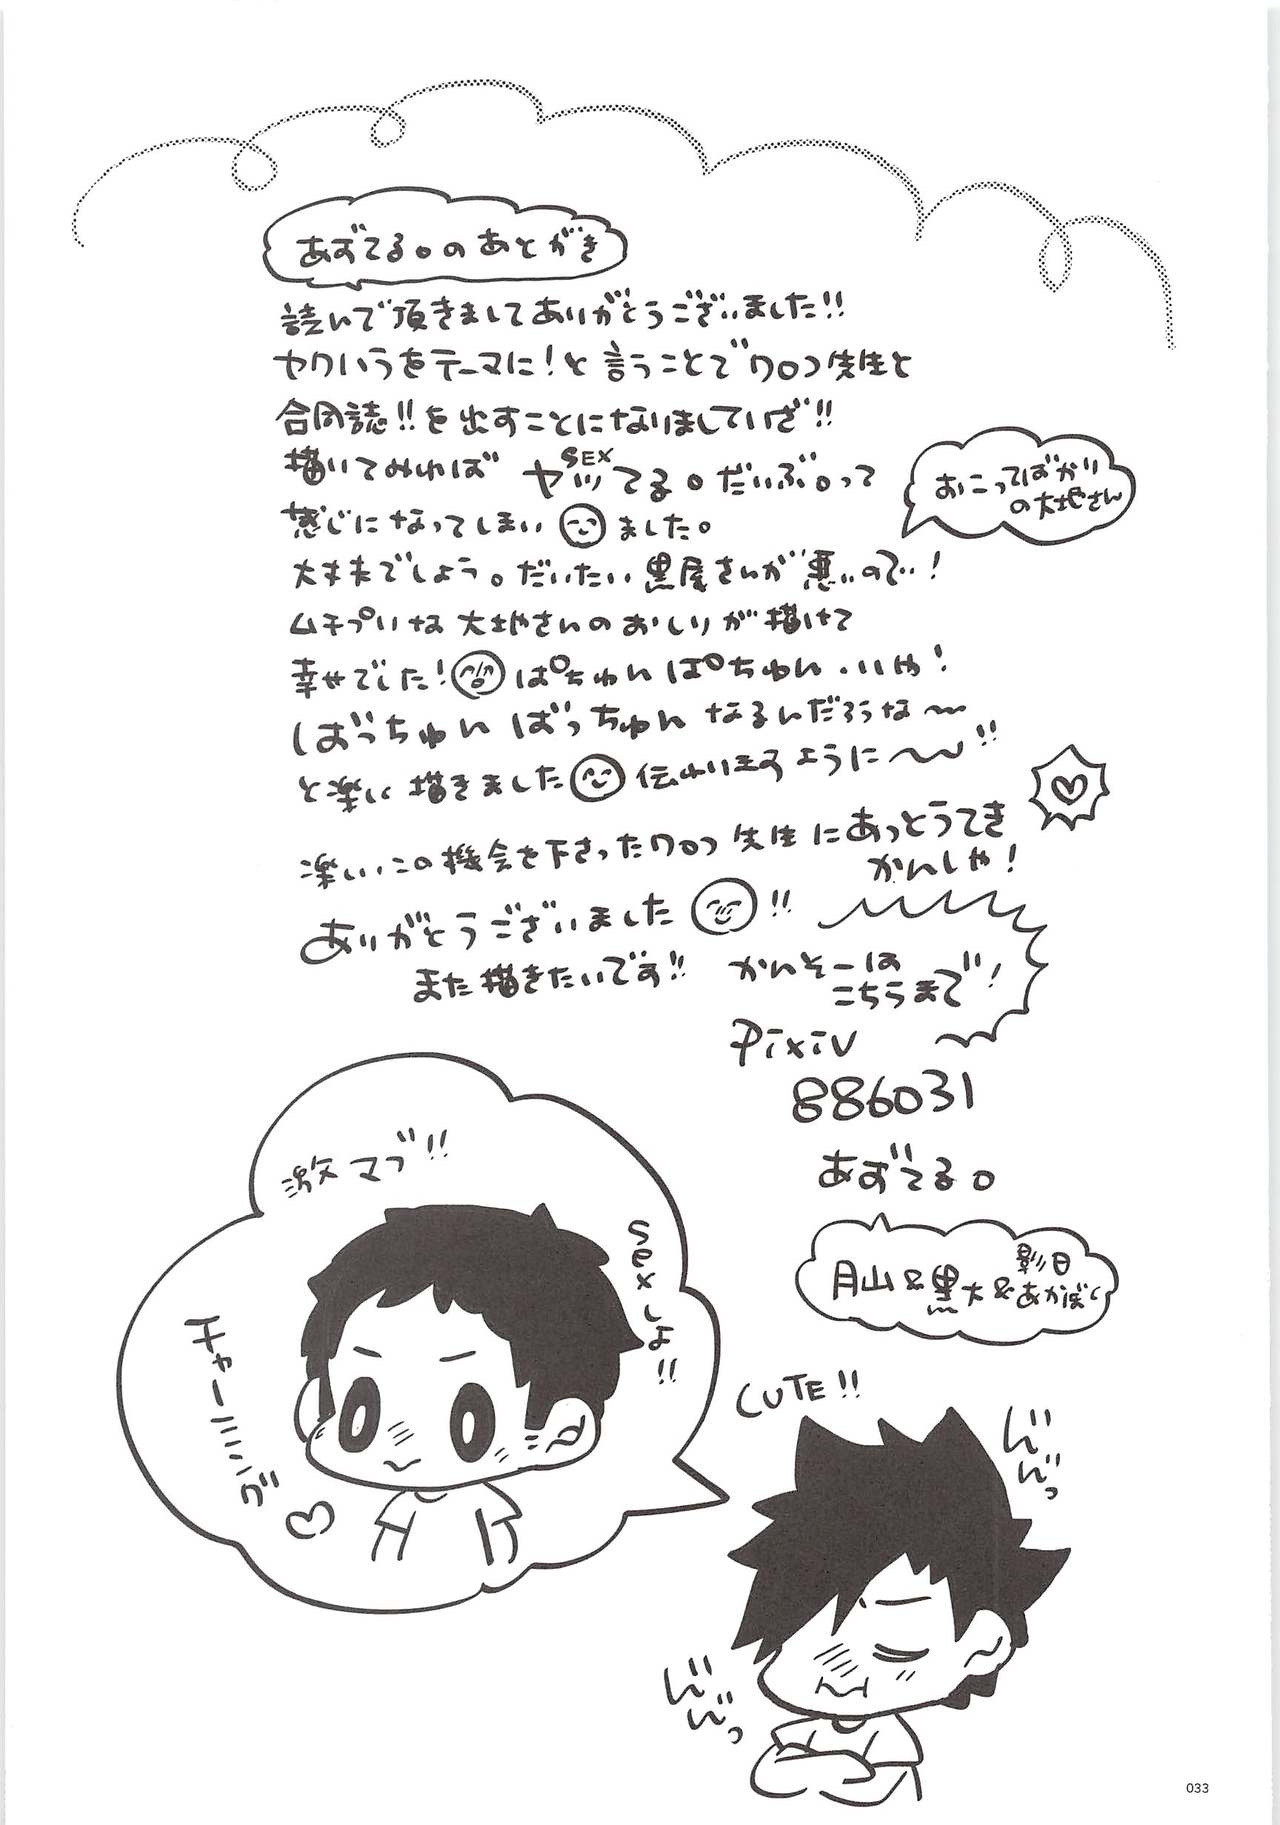 あずてる。のあとがき
読んで頂きましてありがとうございました!!
ヤクいうをテーマに!と言うことでワロコ先生と
合同誌!!を出すことになりましていざ!!
描いてみれば ヤッてる。だいぶ。って
SEX
感じになってしまいました。
おこってばかり
の大地さん
大丈夫でしょう。だいたい黒尾さんが悪いので!
ムチプリな大地さんのおしりが描けて
幸せでした! ぱちゅんぱちゅん・・いや!
ばっちゅんばっちゅんなるんだろうな〜
と楽しい描きました 伝わりますように〜!!
楽しいこの機会を下さったワロコ先生にあっとうてき
かんしゃ!
ありがとうございました!!
また描きたいです!!
かんそーは
こちらまで!
Pixiv
886031
あずてる。
影日
月山&黒大&あかぼく
激マブ!!
sexしよ!!
チャーミング
CUTE!!
んんっ
んんっ
033